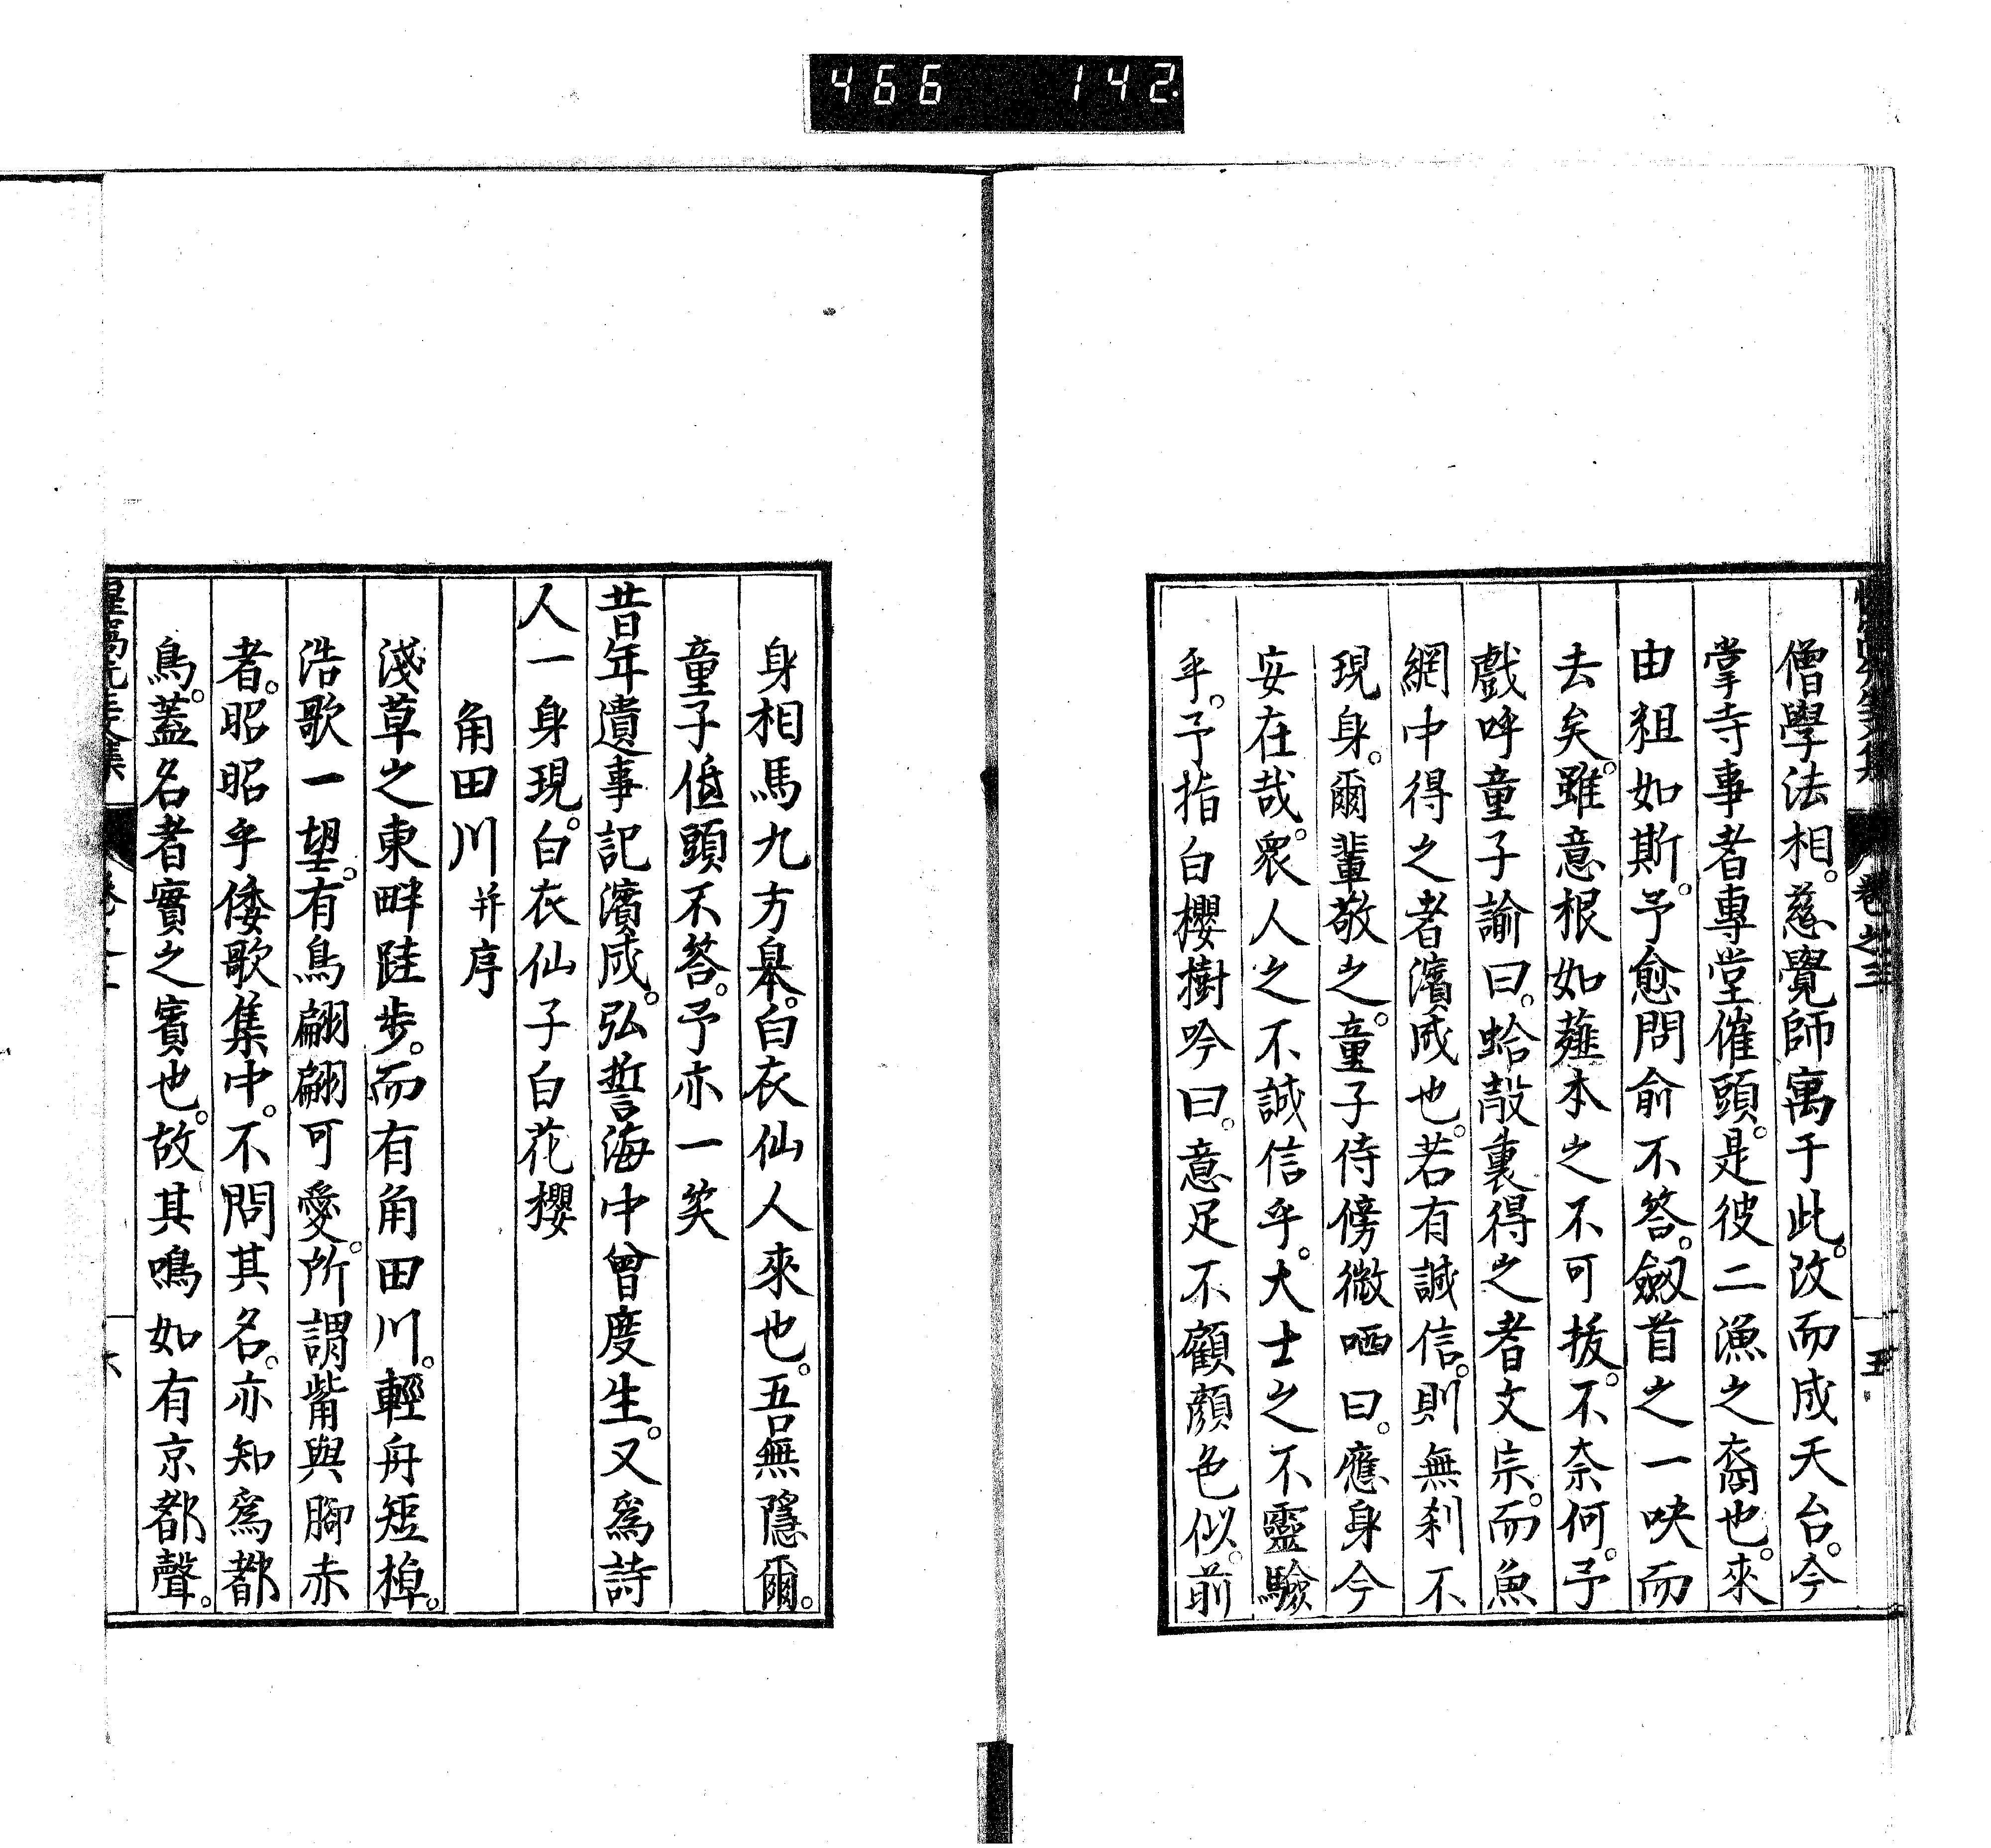 466 142
卷之三
五
僧學法相。慈覺師寓于此。改而成天台。今
掌寺事者專堂催頭。是彼二漁之裔也。來
由粗如斯。予愈問俞不答。劔首之一吷而
去矣。雖意根如薤本之不可拔。不奈何。予
戲呼童子諭曰。蛤殻裏得之者文宗。而魚
網中得之者濱成也。若有誠信。則無刹不
現身。爾輩敬之。童子侍傍微哂曰。應身今
安在哉。衆人之不誠信乎。大士之不靈驗
乎。予指白櫻樹吟曰。意足不顧顏色似。前
身相馬九方皋。白衣仙人來也。吾無隱爾。
童子低頭不答。予亦一笑
昔年遺事記濱成。弘誓海中曾度生。又爲詩
人一身現。白衣仙子白花櫻
角田川并序
淺草之東畔跬步。而有角田川。輕舟短棹。
浩歌一望。有鳥翩翩可愛。所謂觜與腳赤
者。昭昭乎倭歌集中。不問其名。亦知爲都
鳥。蓋名者實之賓也。故其鳴如有京都聲。
惺窩先生文集